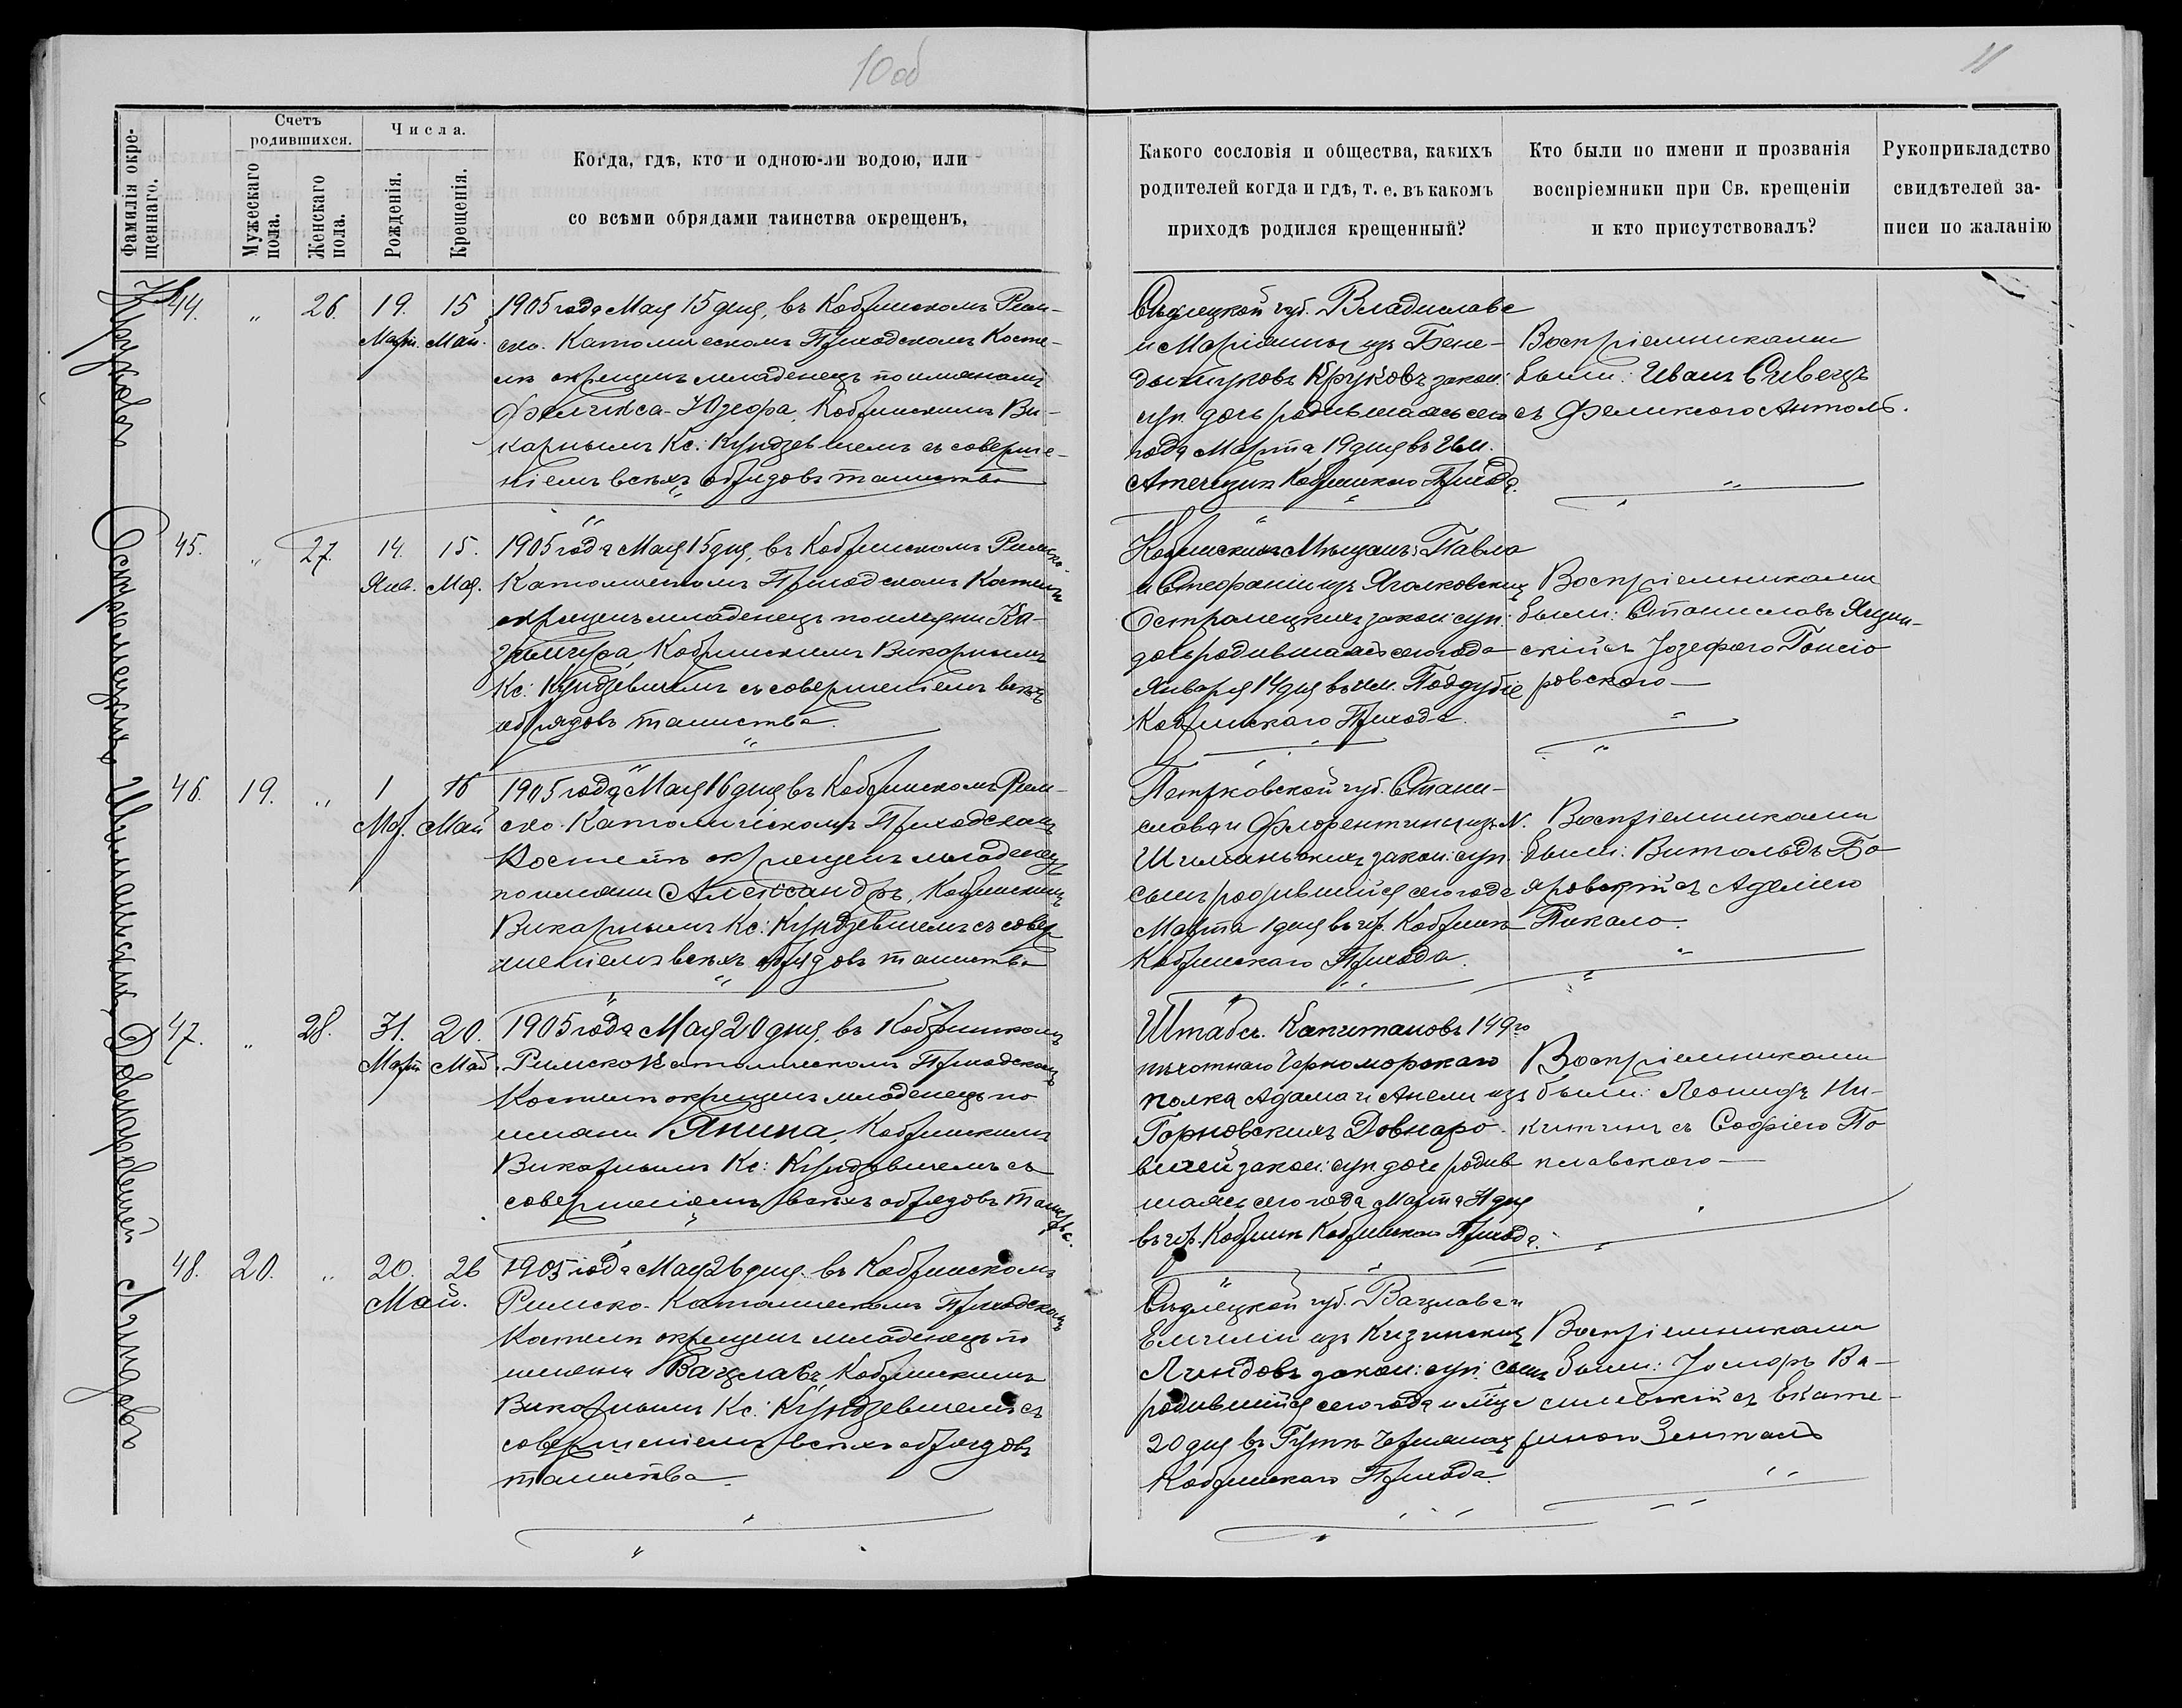 10 об
11
Фамилія окре-
щеннаго.
Счетъ
родившихся.
Мужескаго
пола.
Женскаго
пола.
Числа.
Рожденія.
Крещенія.
Когда, гдѣ, кто и одною-ли водою, или
со всѣми обрядами таинства окрещенъ.
Какого сословія и общества, какихъ
родителей когда и гдѣ, т. е. въ какомъ
приходѣ родился крещенный?
Кто были по имени и прозванія
воспріемники при Св. крещеніи
и кто присутствовалъ?
Рукоприкладство
свидѣтелей за-
писи по жаланію
Круковъ
44. " 26. 19. 15
Март. Май.
1905 года Мая 15 дня, въ Кобринскомъ Рим-
ско-Католическомъ Приходскомъ Косте-
лѣ окрещенъ младенецъ по именамъ
Феликса-Юзефа, Кобринскимъ Ви-
карнымъ Кс: Кундзевичемъ съ соверше-
ніемъ всѣхъ обрядовъ таинства
Сѣдлецкой губ. Владислава
и Маріанны изъ Бене-
Круковъ закон:
суп. дочь родившаяся сего
года Марта 19 дня въ Им.
Кобринскаго Прихода.
Воспріемниками
были: Иванъ
съ Феликсою
Остромецкихъ
45. " 27. 14. 15.
Янв. Мая.
1905 года Мая 15 дня, въ Кобринскомъ Римско-
Католическомъ Приходскомъ Костелѣ
окрещенъ младенецъ по имени Ка-
зимира, Кобринскимъ Викарнымъ
Кс: Кундзевичемъ съ совершеніемъ всѣхъ
обрядовъ таинства.
Кобринскихъ Мѣщанъ: Павла
и Стефаніи изъ Яголковскихъ
Остромецкихъ закон: суп:
дочь родившаяся сего года
Января 14 дня въ им. Поддубье
Кобринскаго Прихода.
Воспріемниками
были: Станиславъ
скій съ Іозефою Гонсіо
ровскою
Шиманьскихъ
46. 19. " 1 16
Мар. Май
1905 года Мая 16 дня въ Кобринскомъ Рим-
ско-Католическомъ Приходскомъ
Костелѣ окрещенъ младенецъ
по имени Александръ, Кобринскимъ
Викарнымъ Кс: Кундзевичемъ съ совер
шеніемъ всѣхъ обрядовъ таинства
Петрковской губ. Стани-
слава и Флорентины изъ N.
Шиманьскихъ закон: суп:
сынъ родившійся сего года
Марта 1 дня въ гор. Кобринѣ
Кобринскаго Прихода.
Воспріемниками
были: Витольдъ Бо
яровскій съ Аделіею
Пикало.
Довнаровичей
47. " 28. 31. 20.
Март Май.
1905 года Мая 20 дня, въ Кобринскомъ
Римско-Католическомъ Приходскомъ
Костелѣ окрещенъ младенецъ по
имени Янина, Кобринскимъ
Викарнымъ Кс: Кундзевичемъ съ
совершеніемъ всѣхъ обрядовъ таинства.
Штабсъ-Капитановъ 149го
пѣхотнаго Черноморскаго
полка Адама и Анели изъ
Горновскихъ Довнаро-
вичей закон: суп. дочь родив
шаяся сего года Марта 31 дня
въ гор. Кобринѣ Кобринскаго Прихода.
Воспріемниками
были: Леонидъ Ни-
китинъ съ Софіею По
плавскою
Линдовъ
48. 20. " 20. 26
Май.
1905 года Мая 26 дня, въ Кобринскомъ
Римско-Католическомъ Приходскомъ
Костелѣ окрещенъ младенецъ по
имени Вацлавъ, Кобринскимъ
Викарнымъ Кс: Кундзевичемъ съ
совершеніемъ всѣхъ обрядовъ
таинства.
Сѣдлецкой губ. Вацлава и
Емиліи изъ Кизинскихъ
Линдовъ закон: суп. сынъ
родившійся сего года и м-ца
20 дня въ
Кобринскаго Прихода.
Воспріемниками
были: Іосифъ Ва-
силевскій съ Екате-
риною